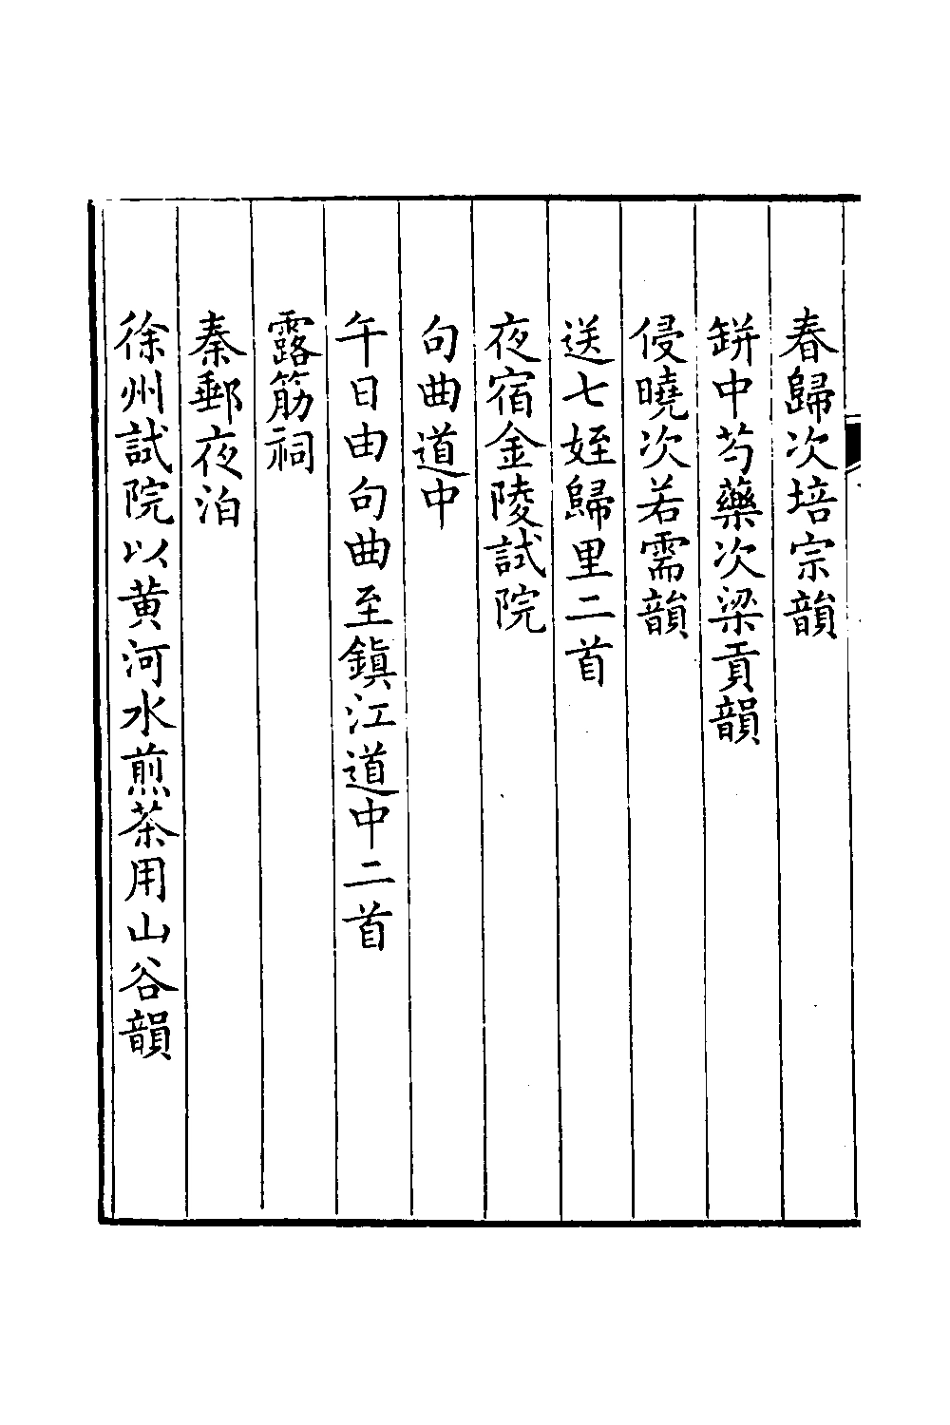 春歸次培宗韻
缾中芍藥次梁貢韻
侵曉次若需韻
送七姪歸里二首
夜宿金陵試院
句曲道中
午日由句曲至鎭江道中二首
露筋祠
秦郵夜泊
徐州試院以黄河水煎茶用山谷韻